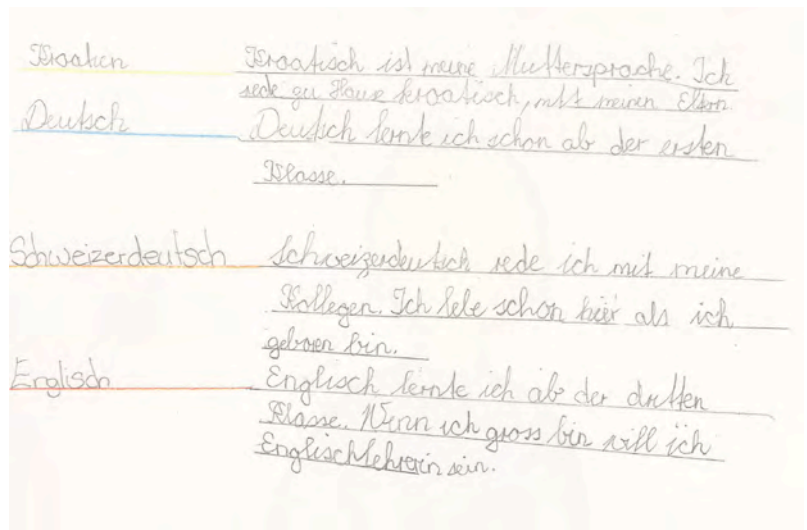 Kroatien Kroatisch ist meine Muttersprache. Ich
rede zu Hause kroatisch, mit meinen Eltern
Deutsch Deutsch lernte ich schon ab der ersten
Klasse.
Schweizerdeutsch Schweizerdeutsch rede ich mit meine
Kollegen. Ich lebe schon hier als ich
geboren bin.
Englisch Englisch lernte ich ab der dritten
Klasse. Wenn ich gross bin will ich
Englischlehrerin sein.